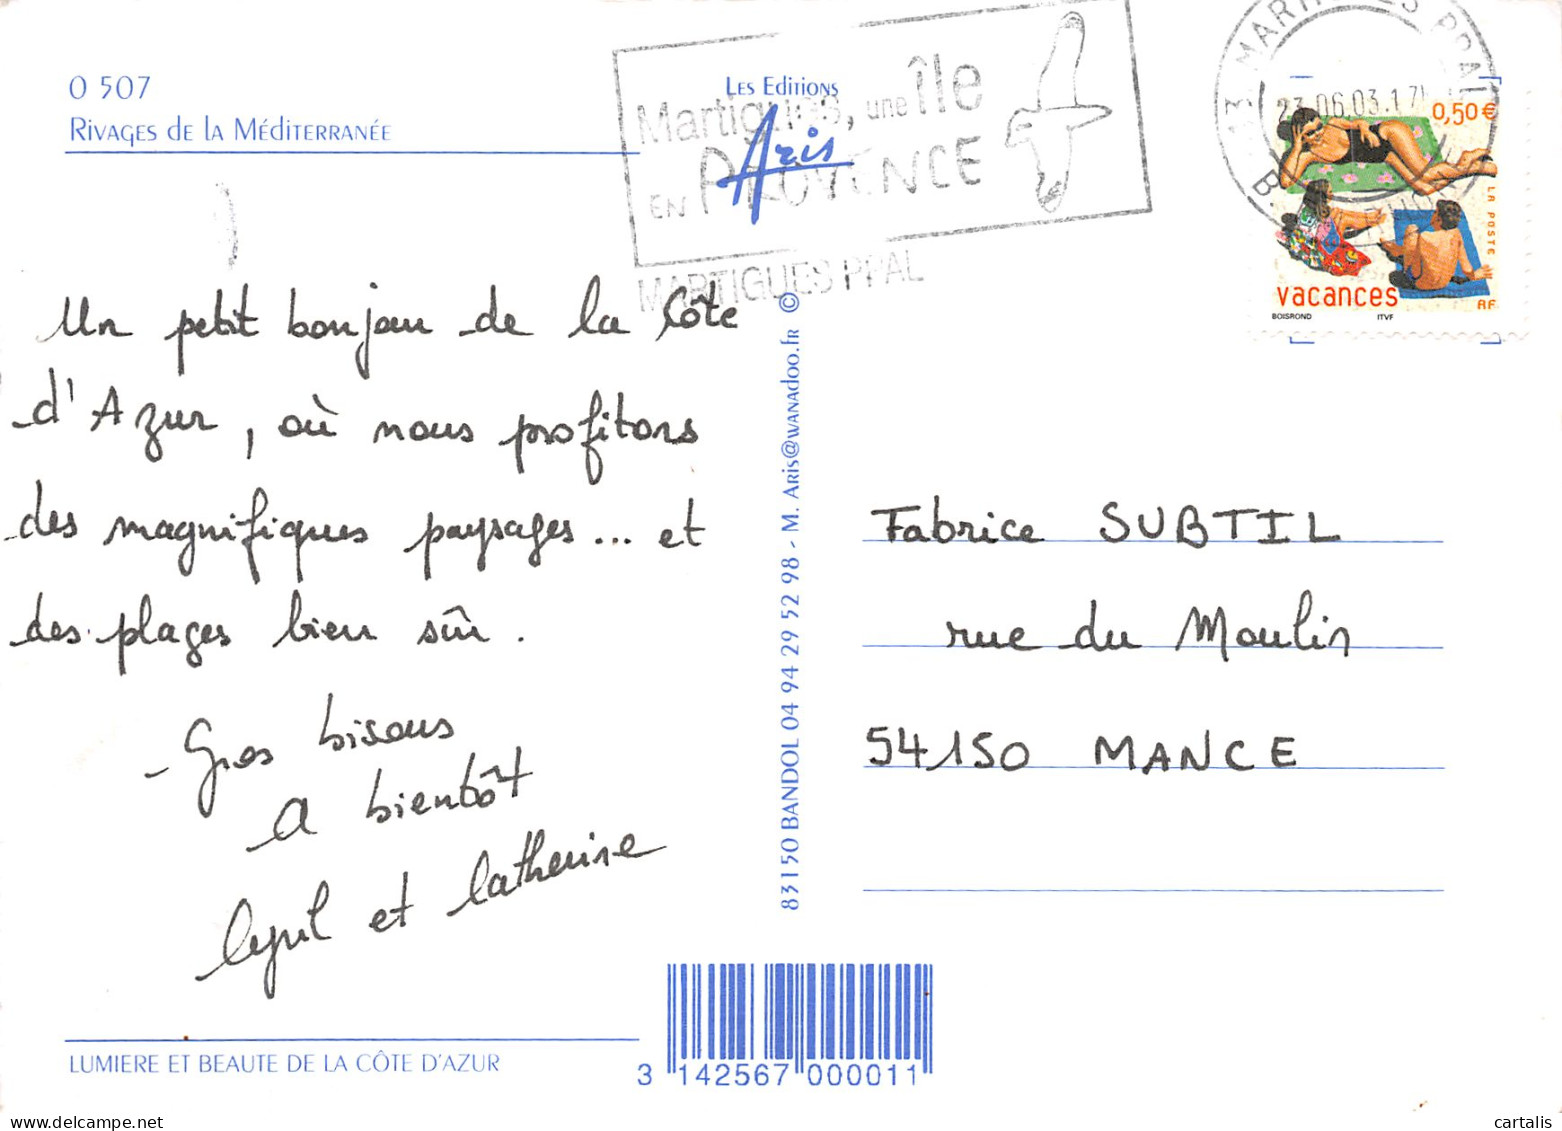 O 507
Rivages de la Méditerranée
Les Editions
Aris
Martigues, une île
EN PROVENCE
MARTIGUES PPAL
13 MARTIGUES PPAL
23.06.03.17
0,50€
LA POSTE
vacances
RF
BOISROND
ITVF
Un petit bonjour de la Côte
d'Azur, où nous profitons
des magnifiques paysages... et
des plages bien sûr.
Gros bisous
A bientôt
Cyril et Catherine
83150 BANDOL 04 94 29 52 98 - M. Aris@wanadoo.fr ©
Fabrice SUBTIL
rue du Moulin
54150 MANCE
LUMIERE ET BEAUTE DE LA CÔTE D'AZUR
3 142567 000011
cartalis